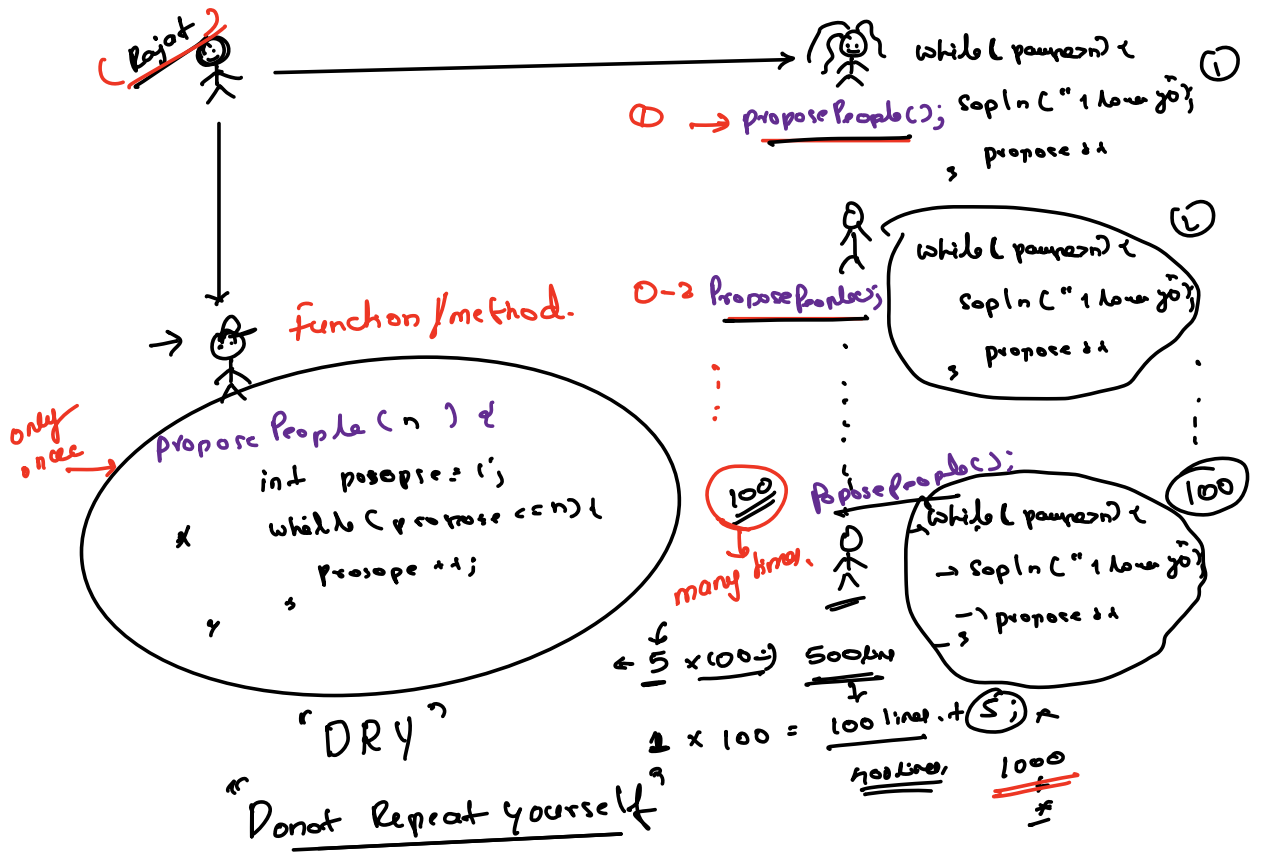 (Rajat)
while( pampan) {
1
sopln (" I love yo");
① → proposePeople();
propose ++
}
2
while( pampan) {
0-2 ProposePeople();
sopln (" I love yo");
propose ++
}
Function/method.
only
once
proposePeople( n ) {
int posopse = 1;
whille( propose <= n) {
prosope ++;
}
}
100
many times.
PoposePeople();
100
while( pampan) {
→ sopln (" I love yo");
→ propose ++
}
← 5 × 100 → 500 line
1 × 100 = 100 lines. + 5;
400 lines.
1000
"DRY"
"Donot Repeat yourself"